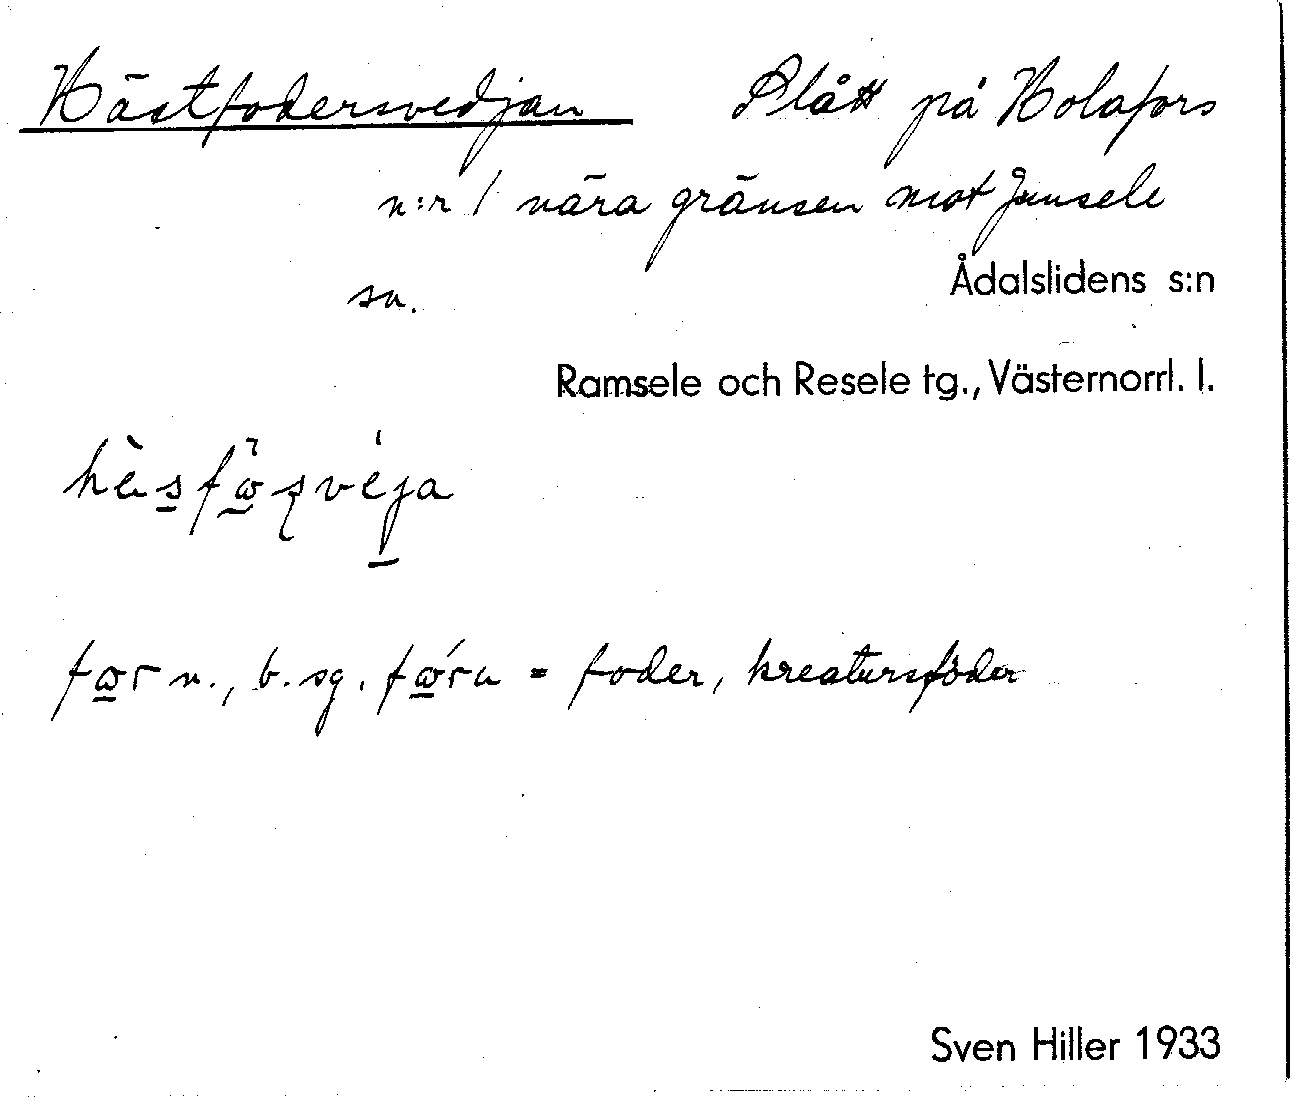 Hästfodersvedjan Slått på Holafors
n:r 1 nära gränsen mot Junsele
sn.
Ådalslidens s:n
Ramsele och Resele tg., Västernorrl. l.
n., b. sg. = foder, kreatursfoder
Sven Hiller 1933